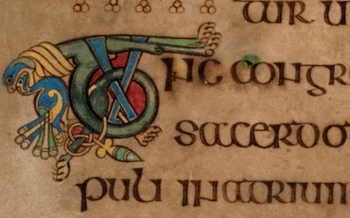 tur u
Tunc congr
sacerdo
puli inatrium